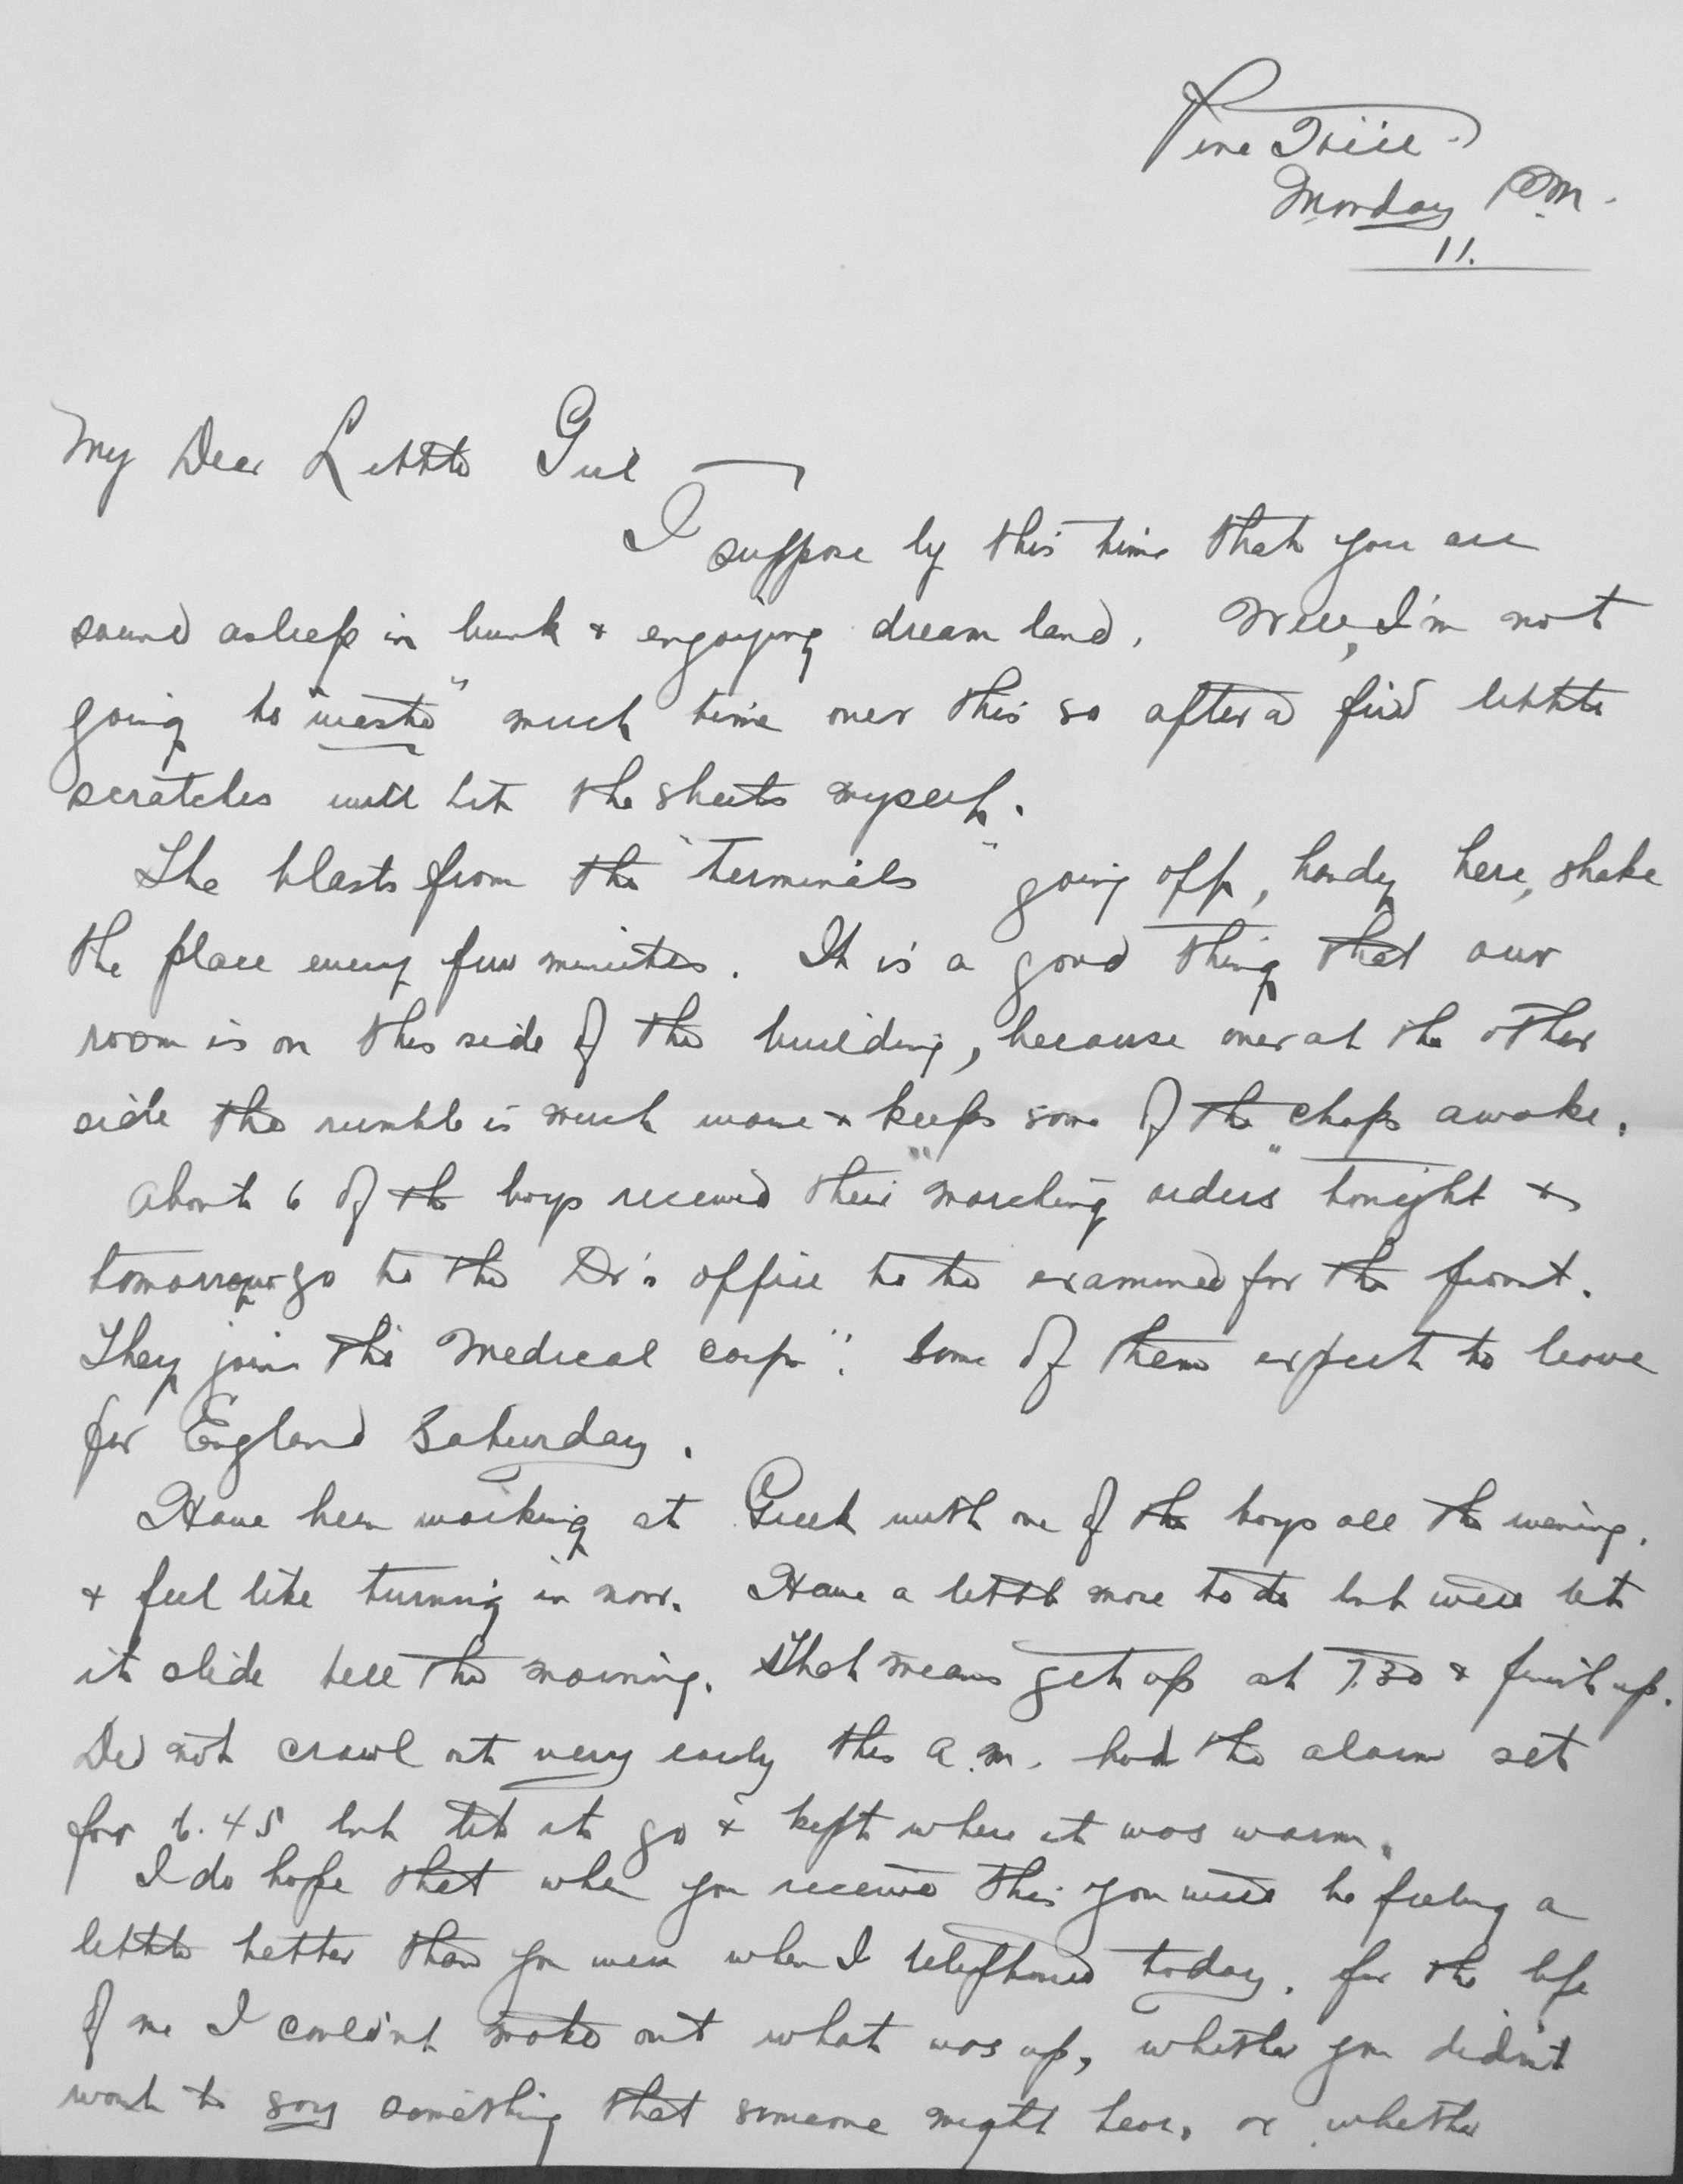 Pine Hill
Monday P.M.
11.
My Dear Little Girl
I suppose by this time that you are
sound asleep in bunk & enjoying dream land. Well, I'm not
going to "waste" much time over this so after a few little
scratches will hit the sheets myself.
The blasts from the "Terminals" going off, handy here, shake
the place every few minutes. It is a good thing that our
room is on this side of the building, because over at the other
side the rumble is much worse & keeps some of the chaps awake.
About 6 of the boys received their "marching orders" tonight &
tomorrow go to the Dr's office to be examined for the front.
They join the Medical corp". Some of them expect to leave
for England Saturday.
Have been working at Greek with one of the boys all the evening.
& feel like turning in now. Have a little more to do but will let
it slide till the morning. That means get up at 7.30 & finish up.
Did not crawl out very early this a.m. had the alarm set
for 6.45 but let it go & kept where it was warm.
I do hope that when you receive this you will be feeling a
little better than you were when I telephoned today. for the life
of me I couldn't make out what was up, whether you didn't
want to say something that someone might hear, or whether